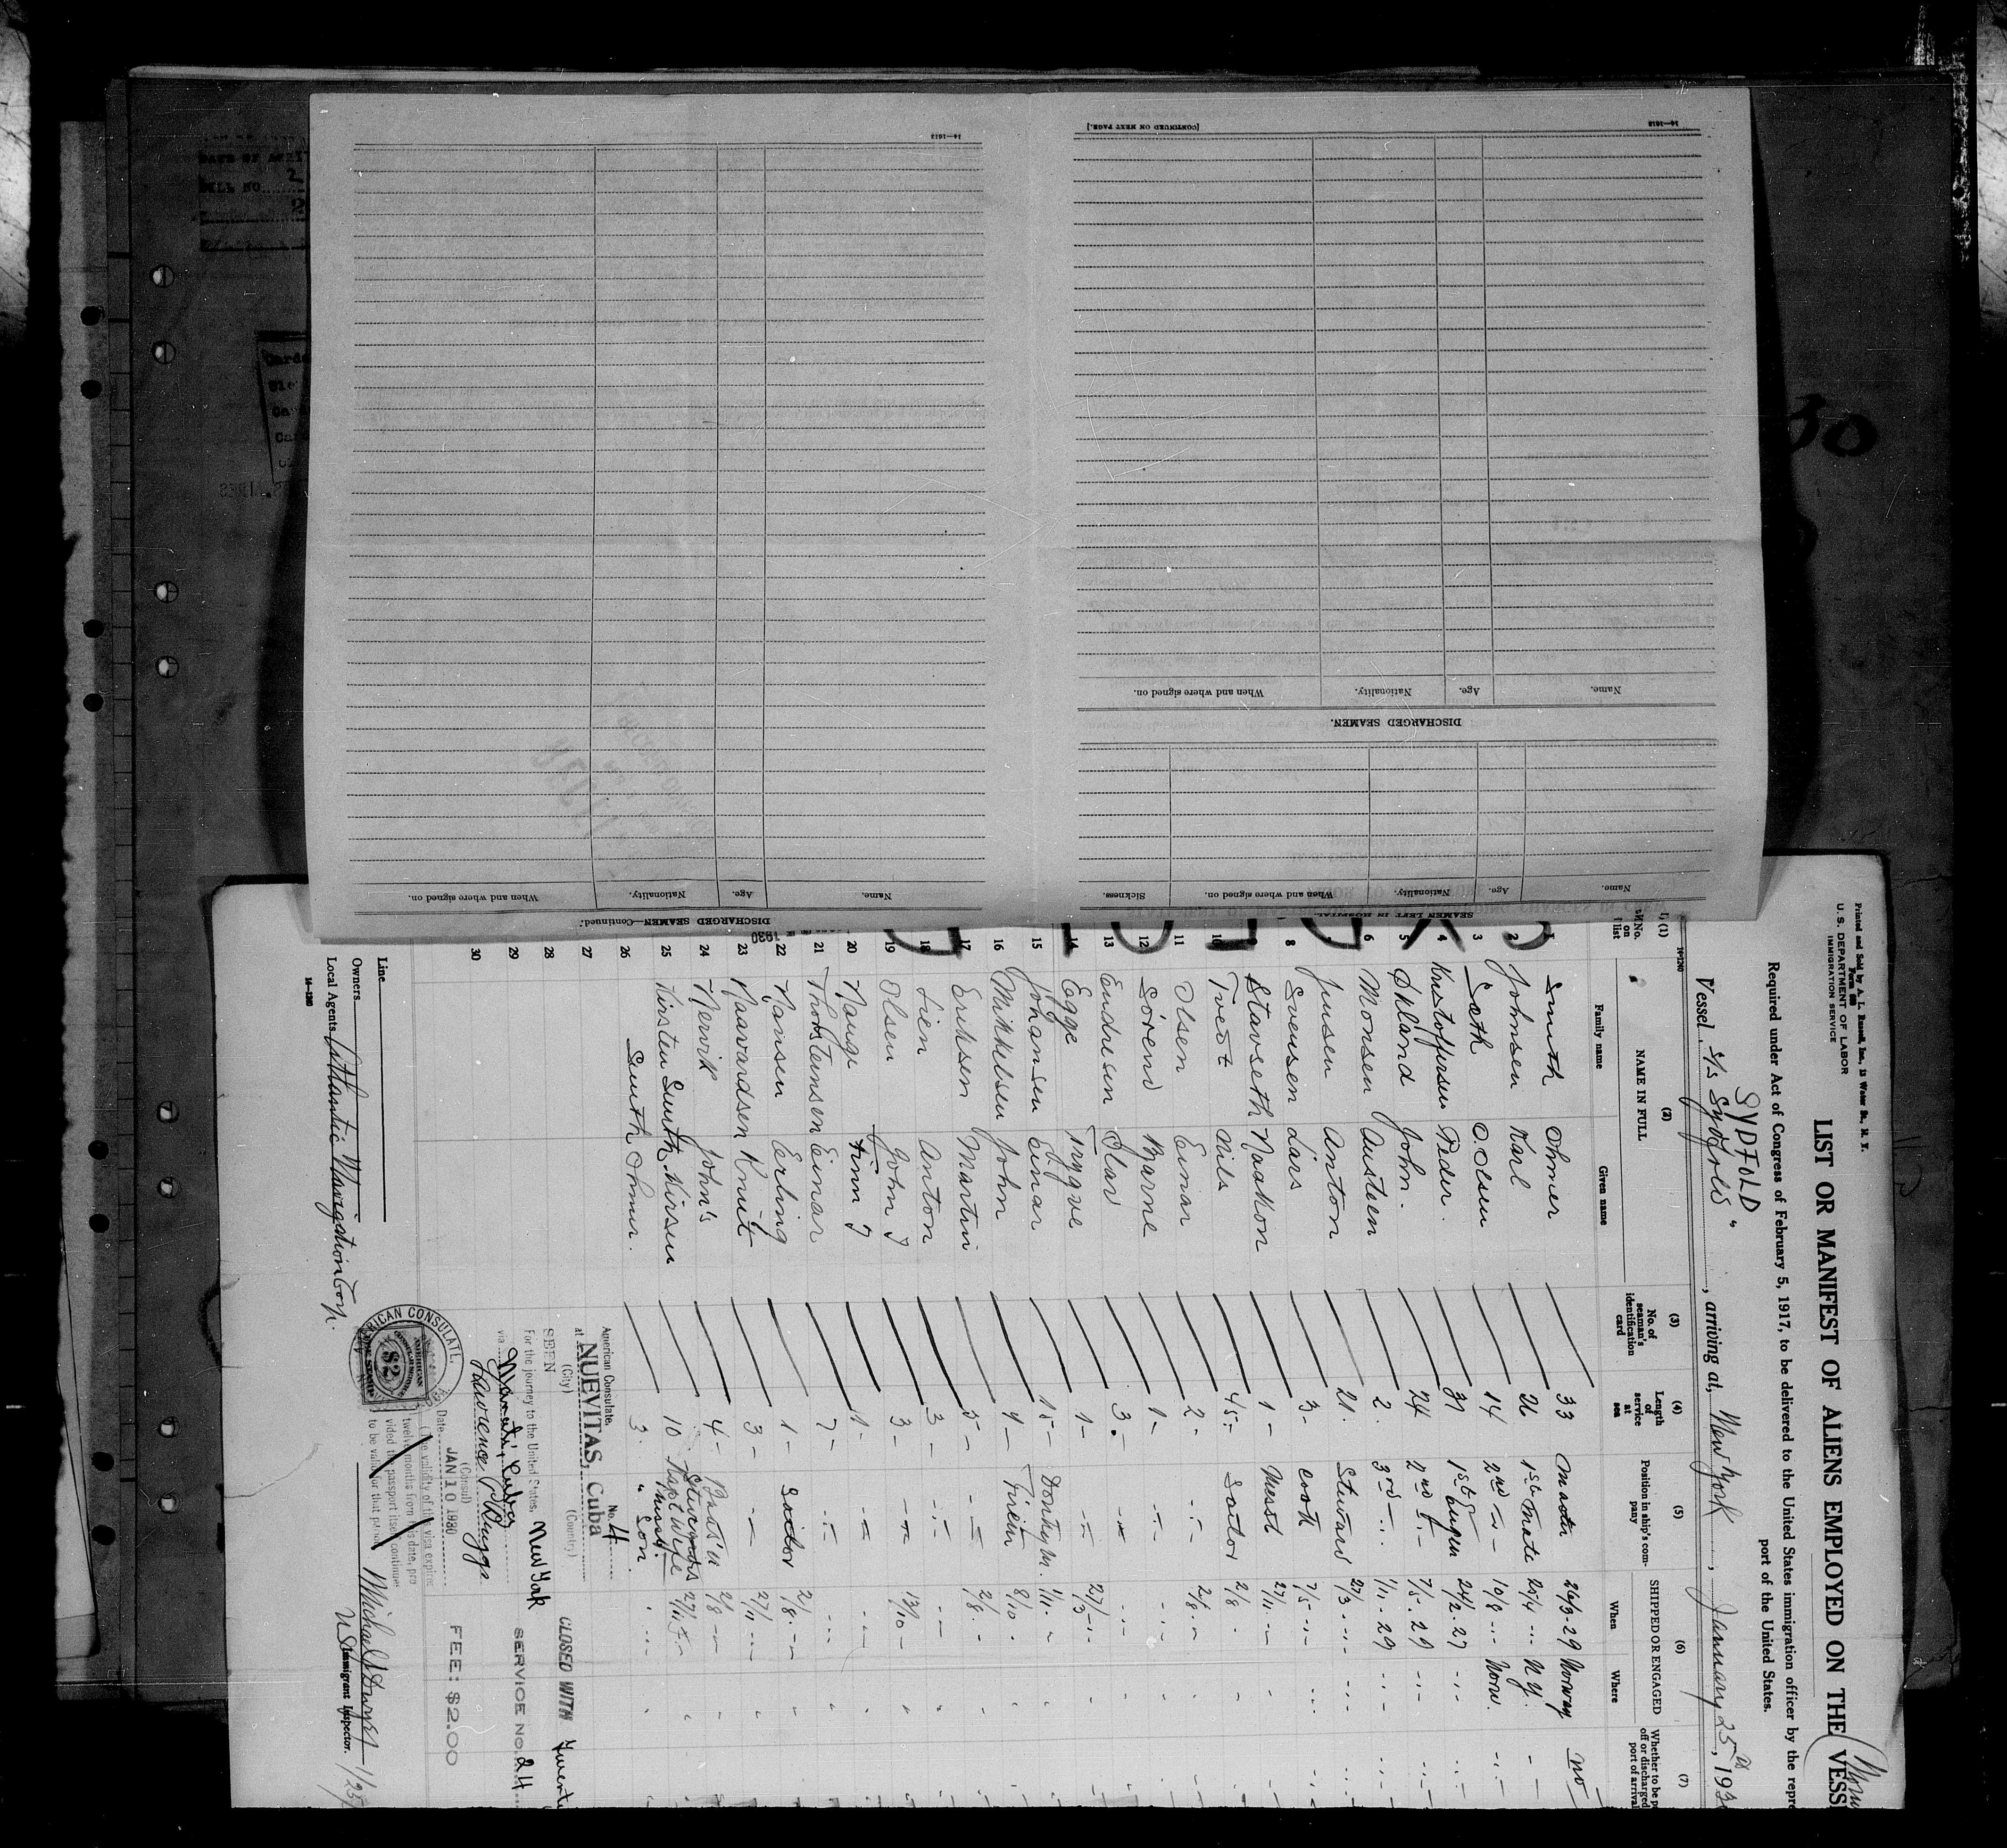 Printed and Sold by A. L. Russell, Inc., 15 Water St., N. Y.
U. S. DEPARTMENT OF LABOR
IMMIGRATION SERVICE
LIST OR MANIFEST OF ALIENS EMPLOYED ON THE VESS
Required under Act of Congress of February 5, 1917, to be delivered to the United States immigration officer by the repre
port of the United States.
SYDFOLD
Vessel S/s "Sydfold", arriving at, New York, January 25th, 193
(1) (2) (3) (4) (5) (6) (7)
No. on list
NAME IN FULL
Family name Given name
No. of seaman's identification card
Length of service at sea
Position in ship's company
SHIPPED OR ENGAGED
When Where
Whether to be p
off or discharged
port of arrival
1 Smith Ohmer 33 Master 26/3-29 Norway no
2 Johnsen Karl 26 1st Mate 25/4 -"- N.Y.
3 Sath O. Olsen 14 2nd -"- 19/8 -"- Norw.
4 Kristoffersen Peder. 37 1st Engen 24/2-27 -"-
5 Økland John. 24 2nd -"- 7/5-29 -"-
6 Monsen Austen 2. 3rd -"- 1/11-29 -"-
7 Jussen Anton 21. Steward 27/3 -"-
8 Svensen Lars 3- cook 7/5 -"-
9 Stavseth Haakon 1- Messb 27/11 -"-
10 Tvedt Nils 45- Sailor 2/8
11 Olsen Einar 2- -"- 2/8 -"-
12 Sörend Marne 1- -"-
13 Endresen Olav 3.- -"-
14 Egge Trygve 1- -"- 27/3 -"-
15 Johansen Einar 15- Donkeym. 1/11 -"-
16 Mikkelsen John 9- Firem 8/10
17 Eriksen Martin 5- -"- 2/8 -
18 Lien Anton 3- -"-
19 Olsen John J 3- -"- 13/10 -
20 Hauge Finn J 1- -"-
21 Thorsteinsen Einar 7- -"-
22 Hansen Erling 1- Sailor 2/8 -"-
23 Haavardsen Knut 3- -"- 27/11 -"-
24 Nervik John's 4- Boats'n 2/8 -"-
25 Kirsten Smith Kirsten 10 Kapt Wife 27/11
26 Smith Ohmer. 3. " Son.
27
28
29
30
American Consulate,
at NUEVITAS, Cuba No. 4
(City) (Country)
SEEN
For the journey to the United States. New York
via Manati, Cuba
(Consul)
Date JAN 10 1930
(The validity of this visa expires
twelve months from this date, pro
vided the passport itself continues
to be valid for that period.
AMERICAN CONSULATE.
$2
CLOSED WITH Twenty
SERVICE NO. 24
FEE: $2.00
Line
Owners
Local Agents Atlantic Navigation Corp.
Michael J Dwyer 1/25/
U S Immigrant Inspector.
14—1240
[CONTINUED ON NEXT PAGE.]
14—1613
Name. Age. Nationality. When and where signed on.
DISCHARGED SEAMEN.
Name. Age. Nationality. When and where signed on. Sickness.
SEAMEN LEFT IN HOSPITAL
14—1613
Name. Age. Nationality. When and where signed on.
DISCHARGED SEAMEN—Continued.